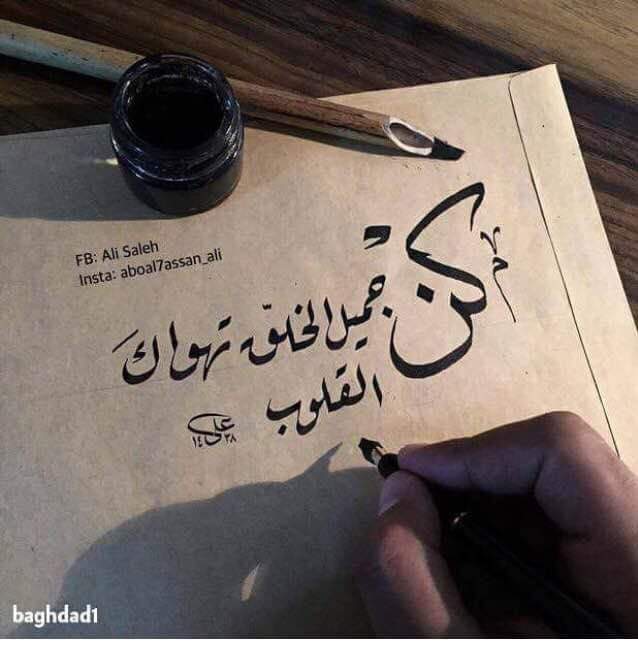 FB: Ali Saleh
Insta: aboal7assan_ali
كن جميل الخلق تهواكَ
القلوب
علي
١٤٣٨
baghdad1